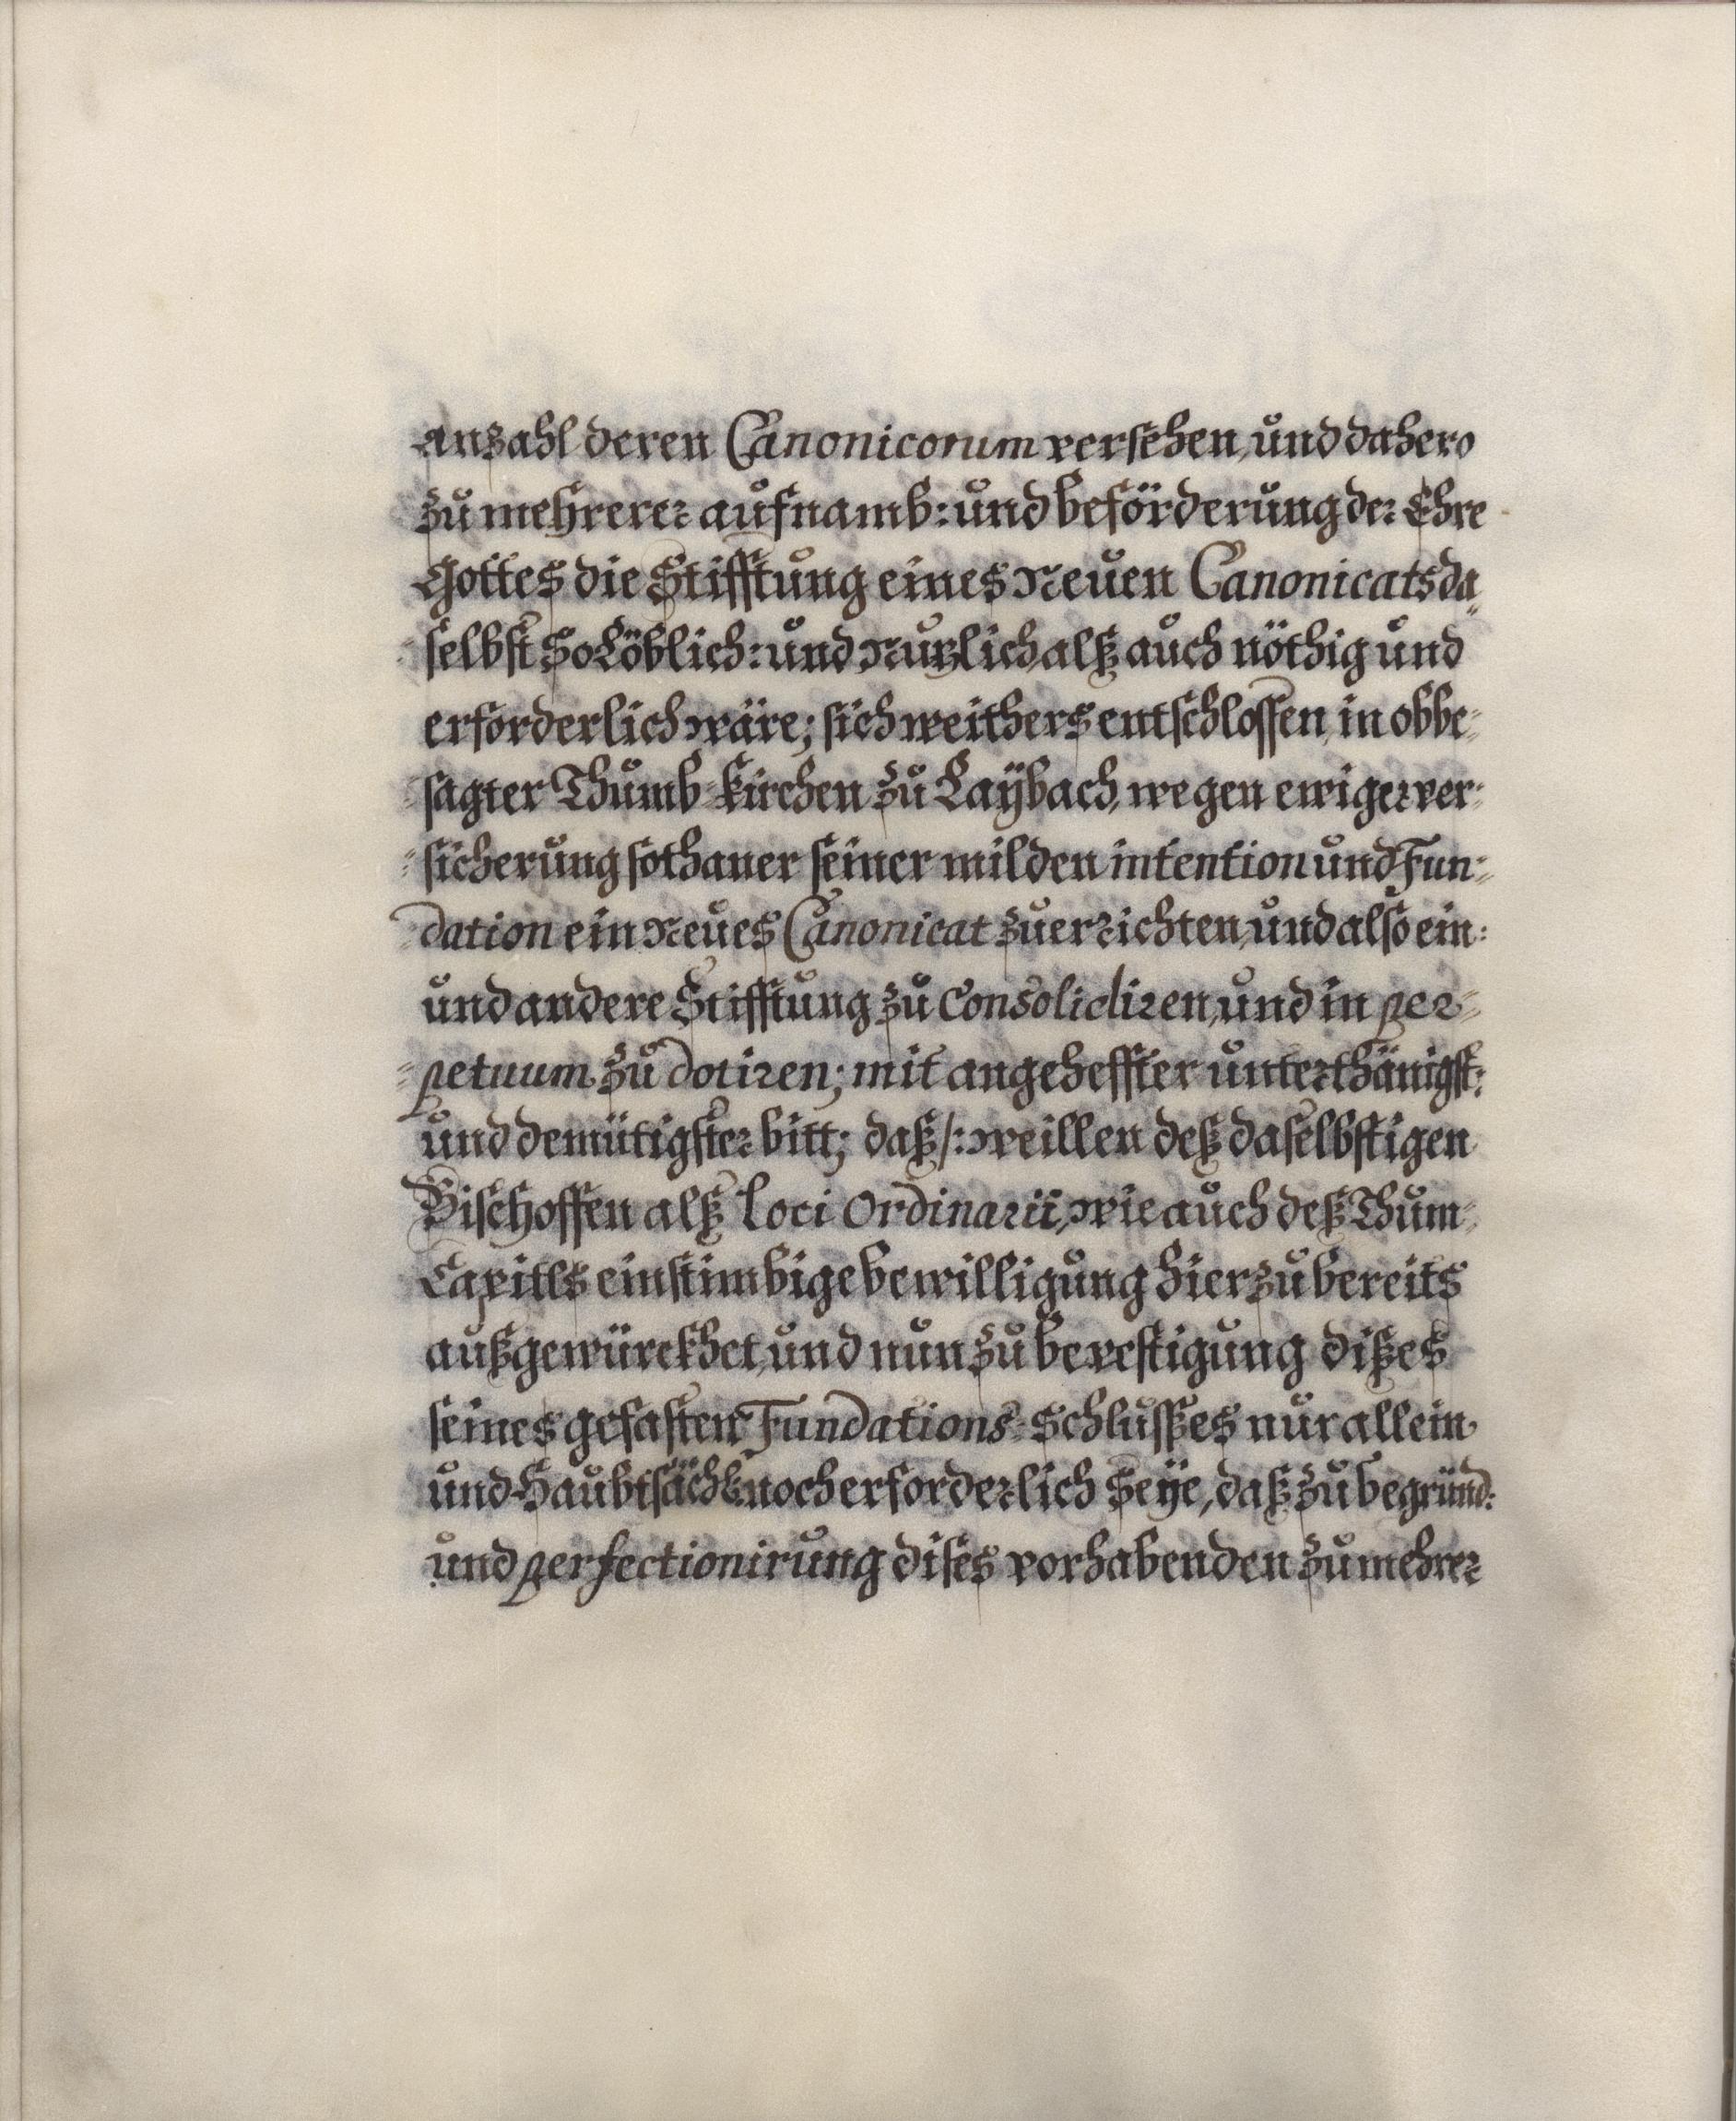 anzahl deren Canonicorum versehen, und dahero
zu mehrerer aufnamb: und beförderung der Ehre
Gottes die Stifftung eines Neuen Canonicats da-
selbst So Löblich: und Nutzlich, alß auch nöthig und
erforderlich wäre; sich weithers entschlossen, in obbe-
sagter Thumb-Kirchen zu Laÿbach, wegen ewiger ver-
sicherung sothaner seiner milden intention und Fun-
dation ein Neues Canonicat zuerrichten, und also ein:
und andere Stifftung zu Consolidiren, und in per-
petuum zu dotiren; mit angeheffter unterthänigst:
und demütigster bitt; daß /: weillen deß daselbstigen
Bischoffen alß Loci Ordinarii, wie auch deß Thum-
Capitls einstimbige bewilligung hierzu bereits
außgewürckhet, und nun zu bevestigung dißes
seines gefasten Fundations-Schlusßes nur allein
und Haubtsächl: noch erforderlich Seÿe, daß zu begründ:
und perfectionirung dises vorhabenden zu mehrer